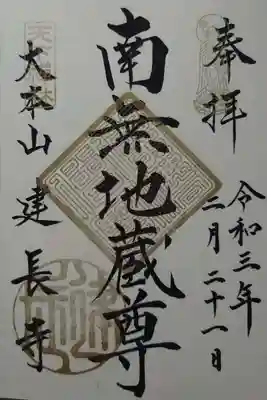 奉拝
令和三年
二月二十一日
南無地蔵尊
大本山建長寺